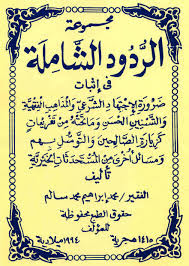 مجموعة
الردود الشاملة
في إثبات
ضرورة الاجتهاد الشرعي والمذاهب الفقهية
والتسنين الحسن وما تحته من تفريعات
كزيارة الصالحين والتوسل بهم
ومسائل أخرى من المستحدثات الخيرية
تأليف
الفقير / محمد إبراهيم محمد سالم
حقوق الطبع محفوظة
للمؤلف
١٤١٥ هجرية - ١٩٩٤ ميلادية